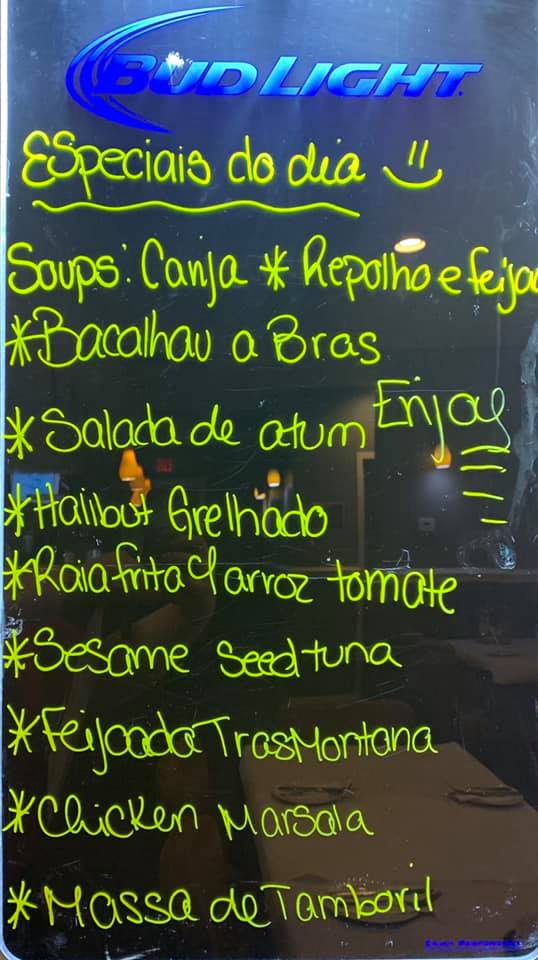 BUD LIGHT
Especiais do dia
Soups: Canja * Repolho e feijao
*Bacalhau a Bras
Enjoy
*Salada de atum
*Halibut Grelhado
*Raia frita c/ arroz tomate
*Sesame seed tuna
*Feijoada TrasMontana
*Chicken Marsala
*Massa de Tamboril
Enjoy Responsibly